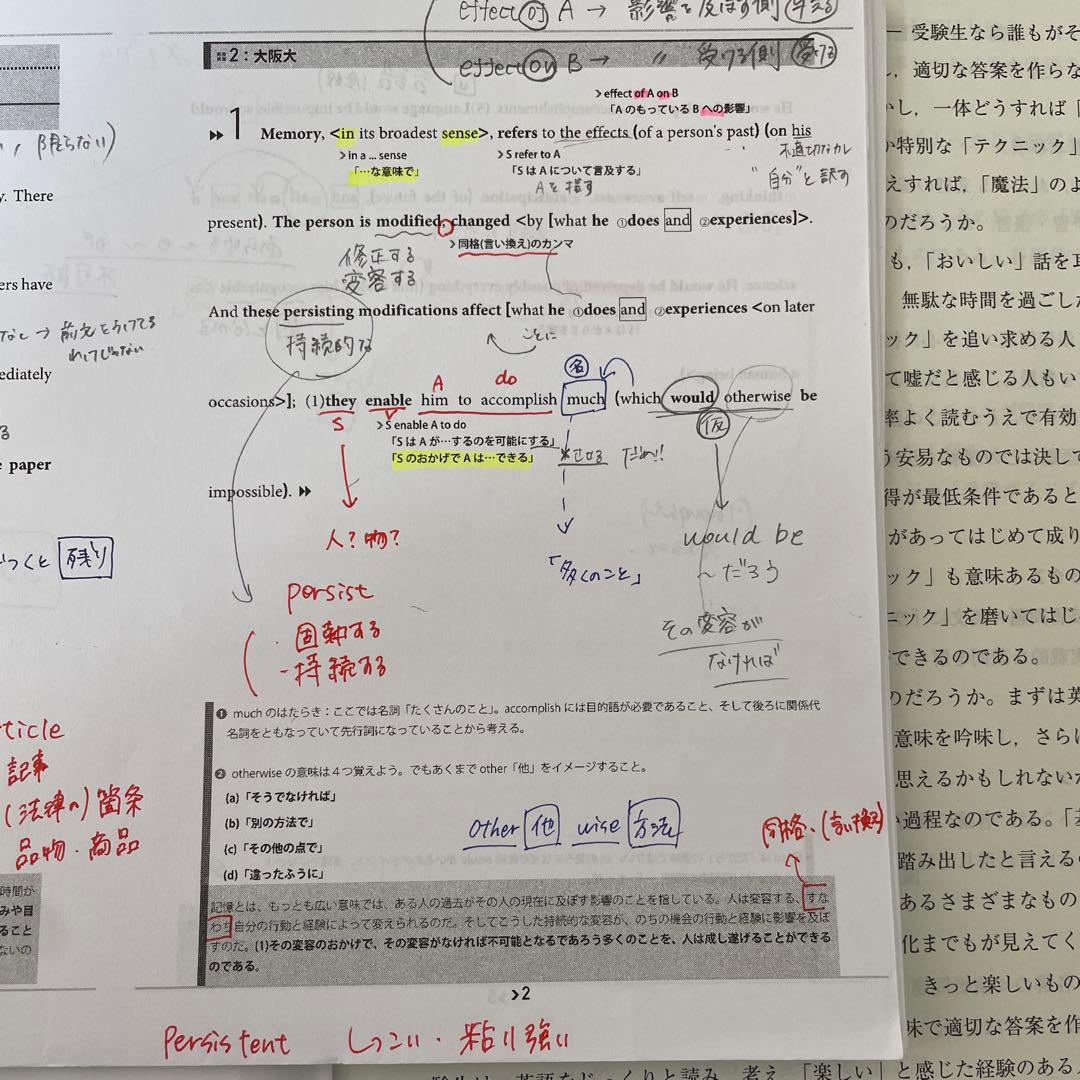 effect of A → 影響を及ぼす側 与える
2：大阪大
effect on B → 〃 受ける側 受ける
effect of A on B
「A のもっている B への影響」
1 Memory, <in its broadest sense>, refers to the effects (of a person's past) (on his
in a ... sense
「…な意味で」
S refer to A
「S は A について言及する」
A を指す
不適切なカレ
"自分" と訳す
present). The person is modified, changed <by [what he ①does and ②experiences]>.
同格(言い換え)のカンマ
修正する
変容する
And these persisting modifications affect [what he ①does and ②experiences <on later
持続的な
ごとに
A do 名
occasions>]; (1)they enable him to accomplish much (which would otherwise be
S V 仮
S enable A to do
「S は A が…するのを可能にする」
「S のおかげで A は…できる」
させる だめ!!
impossible).
人？物？
「多くのこと」
would be
〜だろう
persist
・固執する
-持続する
その変容が
なければ
❶ much のはたらき：ここでは名詞「たくさんのこと」。accomplish には目的語が必要であること、そして後ろに関係代
名詞をともなっていて先行詞になっていることから考える。
❷ otherwise の意味は４つ覚えよう。でもあくまで other「他」をイメージすること。
(a)「そうでなければ」
(b)「別の方法で」
(c)「その他の点で」
(d)「違ったふうに」
other 他 wise 方法
同格、(言い換え)
記憶とは、もっとも広い意味では、ある人の過去がその人の現在に及ぼす影響のことを指している。人は変容する、すな
わち自分の行動と経験によって変えられるのだ。そしてこうした持続的な変容が、のちの機会の行動と経験に影響を及ぼ
すのだ。(1)その変容のおかげで、その変容がなければ不可能となるであろう多くのことを、人は成し遂げることができる
のである。
2
Persistent しつこい・粘り強い
限らない)
y. There
ers have
なし → 前文をうけてる
わけじゃない
ediately
e paper
つくと 残り
rticle
記事
(法律の) 箇条
品物・商品
時間が
みや目
ること
ないの
受験生なら誰もがそ
適切な答案を作らな
かし，一体どうすれば「
か特別な「テクニック」
えすれば，「魔法」のよ
のだろうか。
も，「おいしい」話を耳
無駄な時間を過ごした
ック」を追い求める人
て嘘だと感じる人もい
率よく読むうえで有効
う安易なものでは決して
得が最低条件であると
があってはじめて成り
ック」も意味あるもの
ニック」を磨いてはじ
できるのである。
のだろうか。まずは英
意味を吟味し，さらに
思えるかもしれないが
い過程なのである。「基
踏み出したと言える
あるさまざまなもの
化までもが見えてく
きっと楽しいもの
味で適切な答案を作
「楽しい」と感じた経験のある人